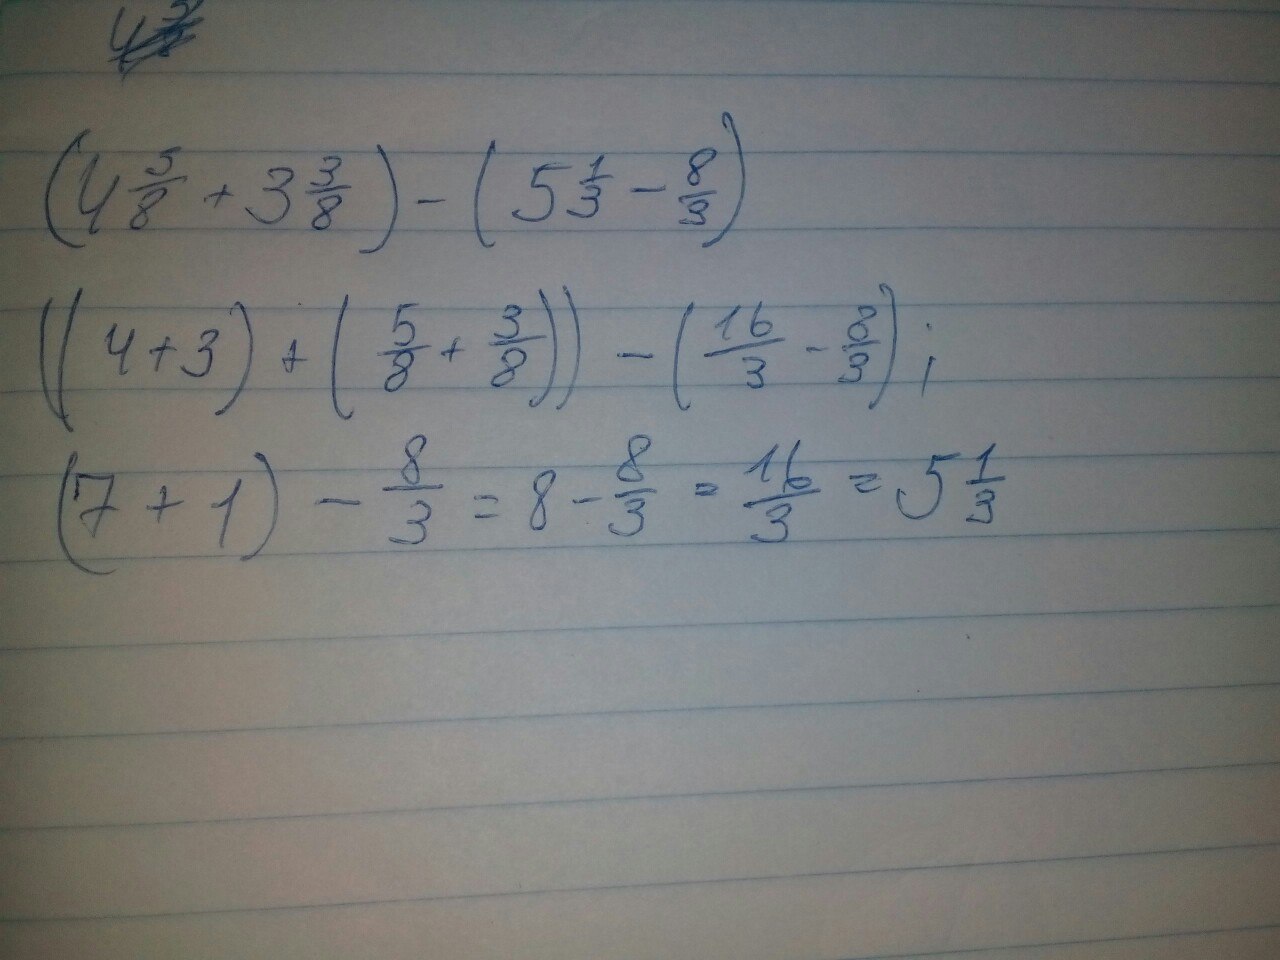 (4 5/8 + 3 3/8) - (5 1/3 - 8/3)
((4+3) + (5/8 + 3/8)) - (16/3 - 8/3);
(7 + 1) - 8/3 = 8 - 8/3 = 16/3 = 5 1/3